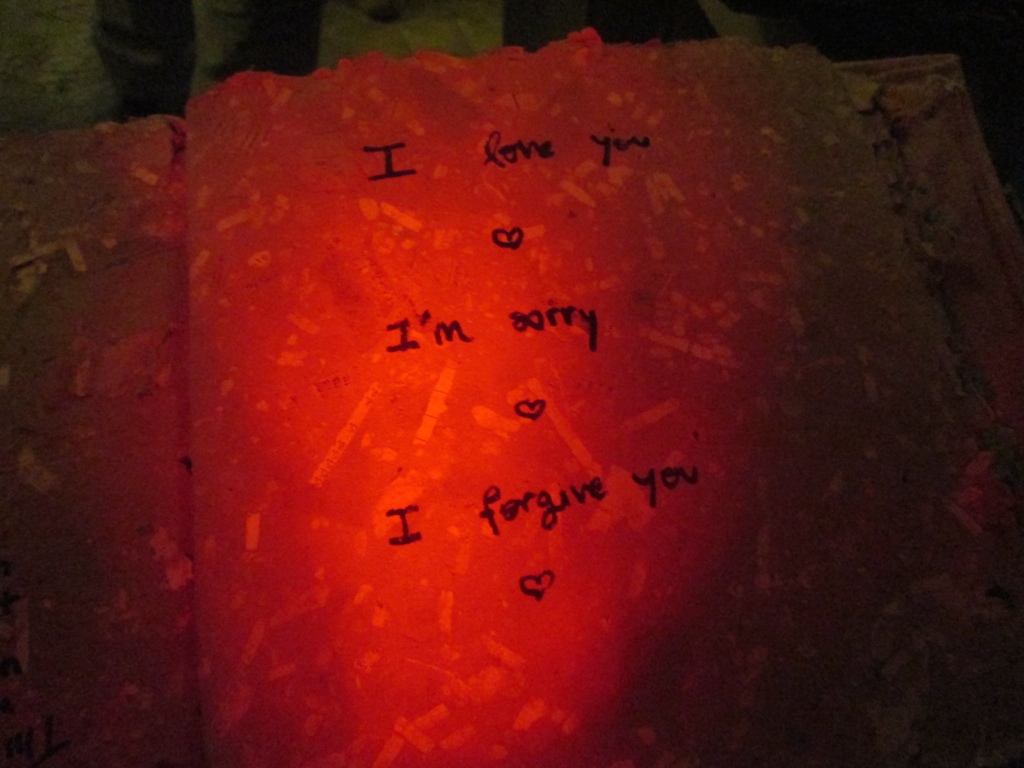 I love you
♡
I'm sorry
♡
I forgive you
♡